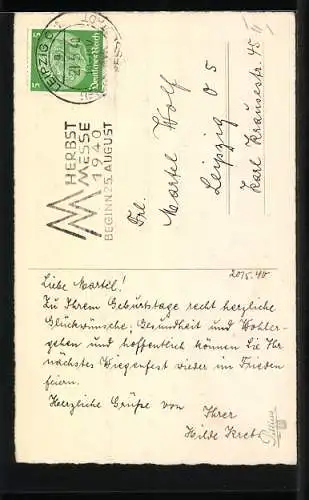 LEIPZIG C
21.5.40
5
Deutsches Reich
HERBST
MESSE
1940
BEGINN 25. AUGUST
Frl.
Martel Wolf
Leipzig O 5
Karl Krausestr. 45 II
20.5.40
Liebe Martel!
Zu Ihrem Geburtstage recht herzliche
Glückwünsche, Gesundheit und Wohler-
gehen und hoffentlich können Sie Ihr
nächstes Wiegenfest wieder im Frieden
feiern.
Herzliche Grüße von Ihrer
Hilde